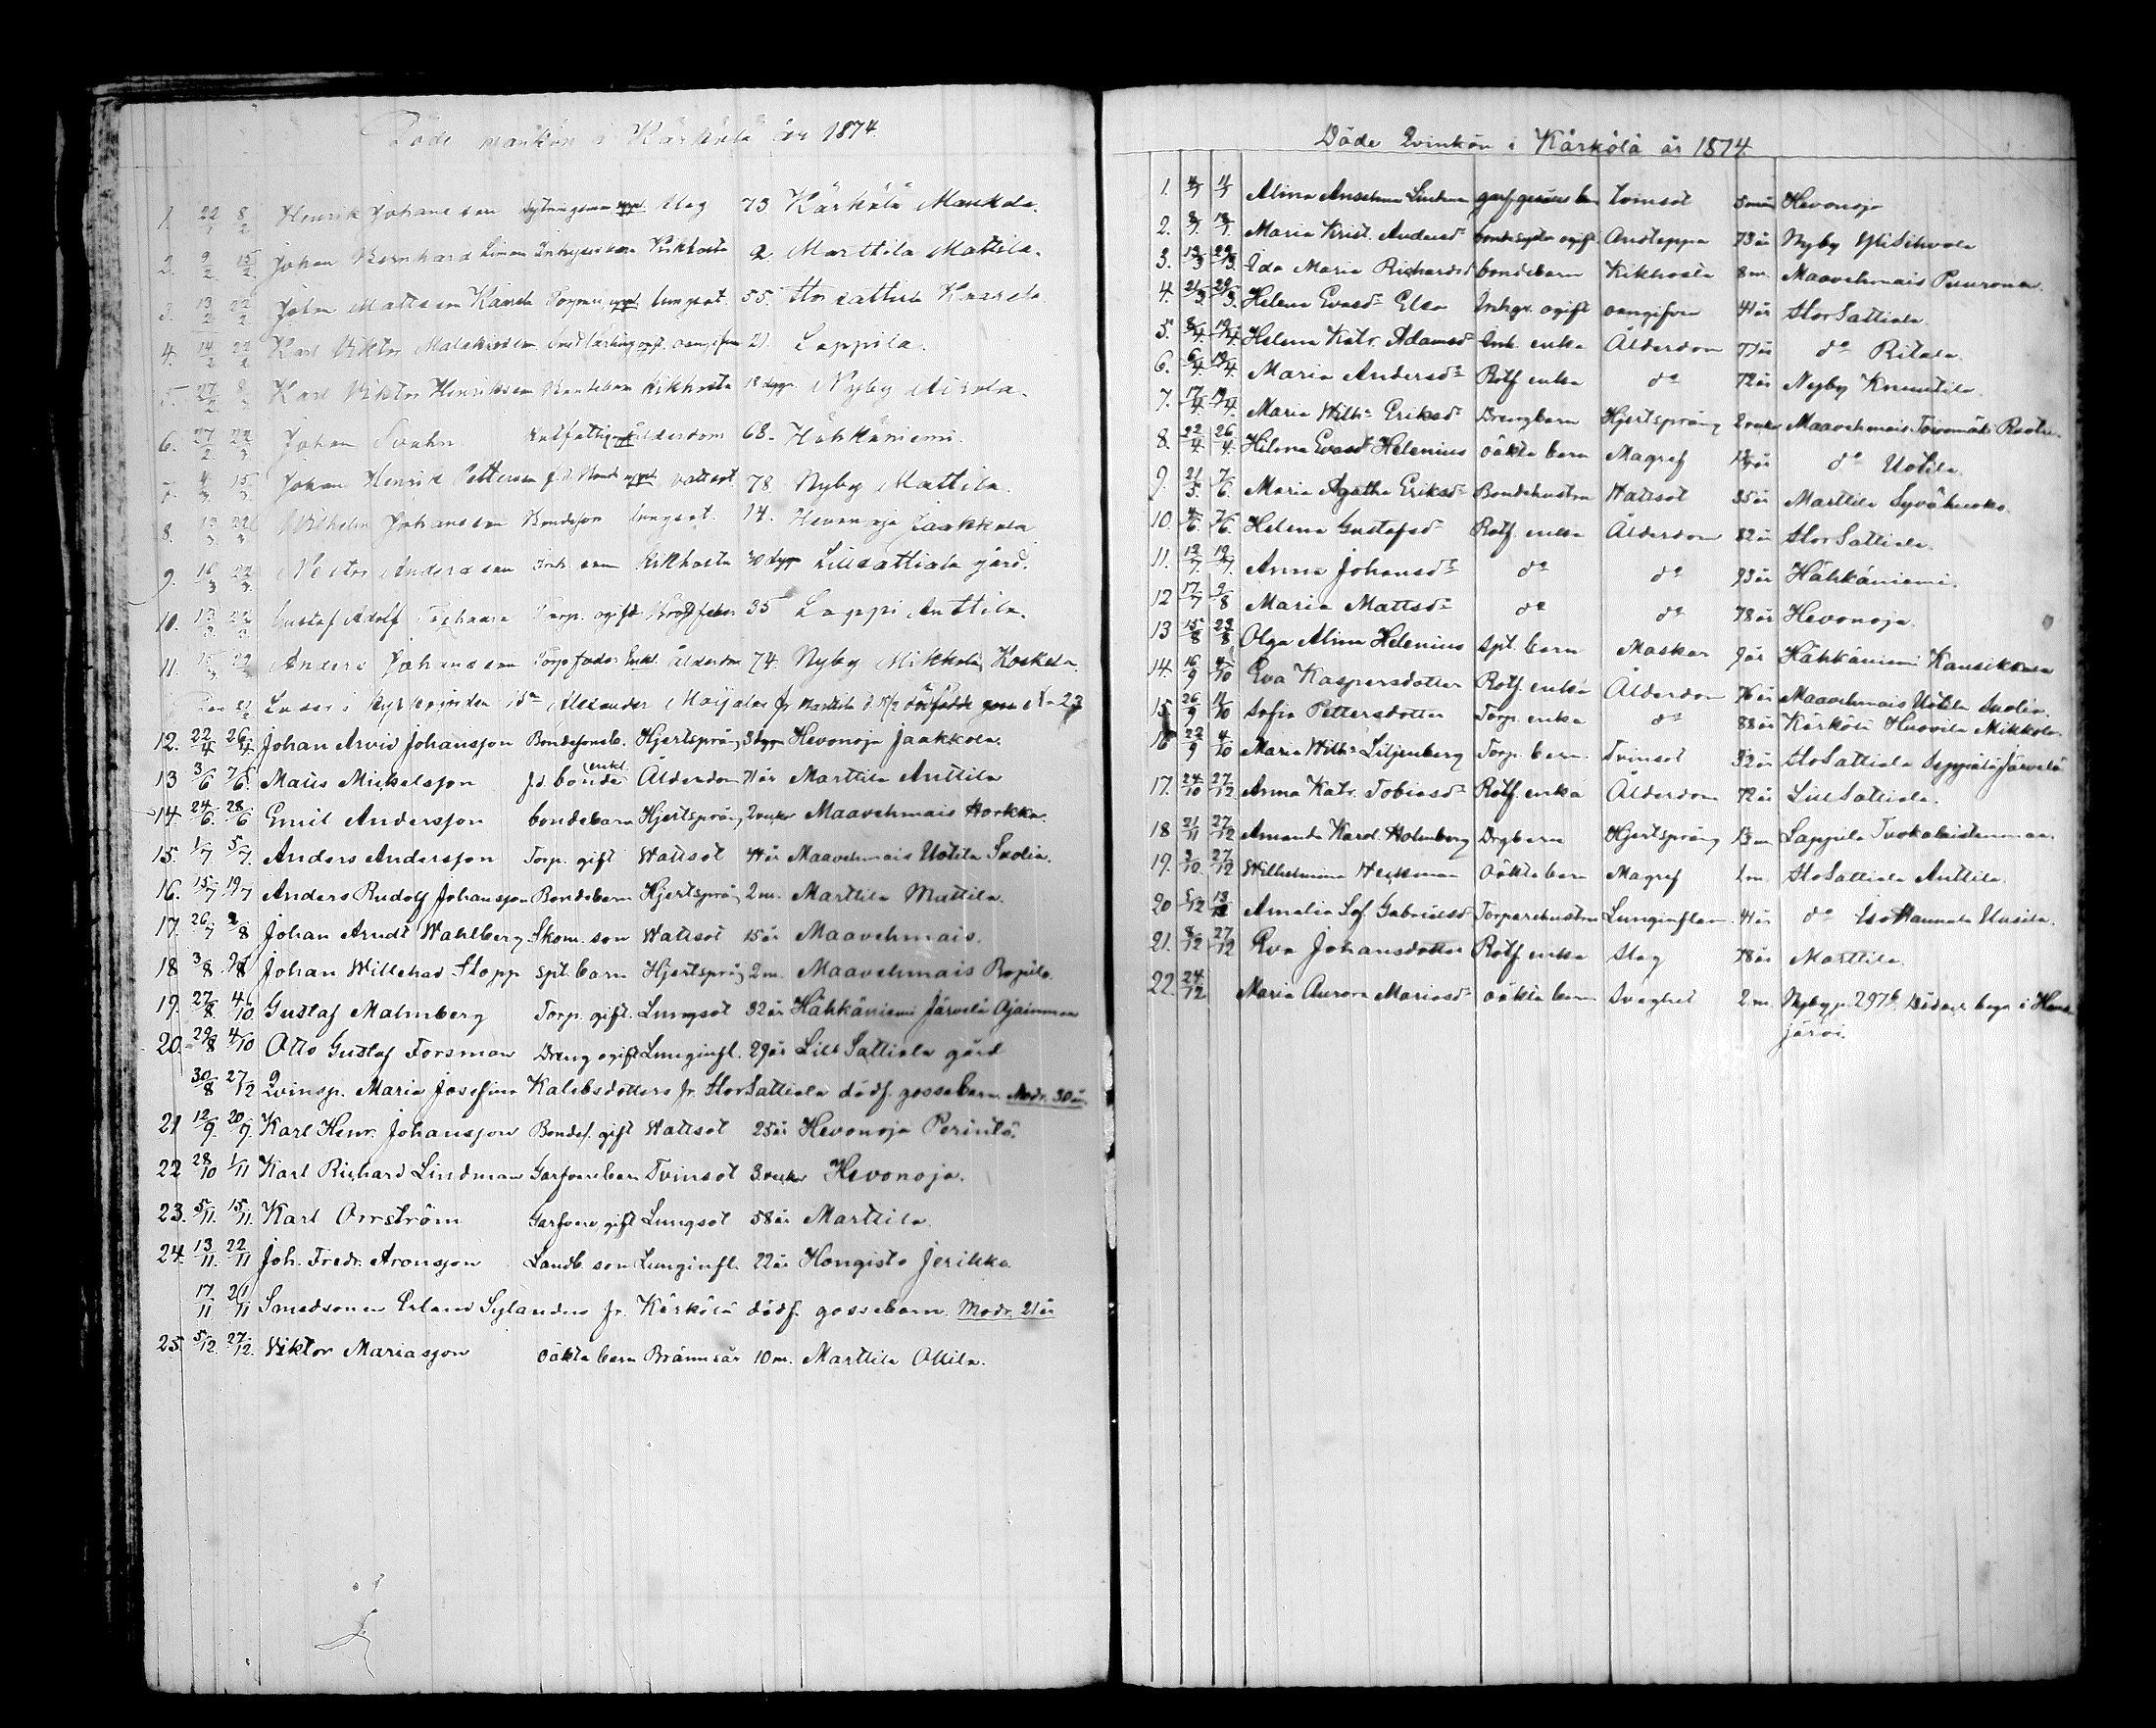 Döde mankön i Kärkölä år 1874.
1. 22/1 8/2 Henrik Johansson Sytningsman Slag 73 Kärkölä Maukola.
2. 9/2 15/2 Johan Bernhard Kikhosta 2 Marttila Mattila.
3. 13/2 22/2 John Mattsson Lungsot. 55. Stor Sattiala
4. 14/2 22/2 Karl Viktor oangifven 21. Lappila.
5. 27/2 8/3 Karl Viktor Henriksson Bondebarn Kikhosta 18 dygn Nyby Aikola.
6. 27/2 22/3 Johan Svahn Rotfattig Ålderdom 68. Hähkäniemi.
7. 4/3 15/3 Johan Henrik Pettersson f.d. Bonde Vattsot. 78 Nyby Mattila.
8. 13/3 22/3 Wilhelm Johansson Bondeson lungsot. 14. Hevonoja Jaakkola
9. 16/3 22/3 Nestor Andersson Inh. son Kikhosta 30 dygn Lillsattiala gård.
10. 13/3 22/3 Gustaf Adolf Torp. ogift 35 Lappi Anttila.
11. 15/3 29/3 Anders Johansson Torpfader Enkl. Ålderdom 74. Nyby Mikkola Koskela
Alexander Marttila
12. 22/4 26/4 Johan Arvid Johansson Bondesonsb. Hjertsprång 3 dygn Hevonoja Jaakkola.
13 3/6 7/6 Mats Mickelsson f.d. bonde enkl. Ålderdom 71 år Marttila Anttila
14. 24/6 28/6 Emil Andersson bondebarn Hjertsprång 2 veckor Maavehmais Horkka.
15. 1/7 5/7 Anders Andersson Torp. gift Wattsot 44 år Maavehmais Uotila Suolia.
16. 15/7 19/7 Anders Rudolf Johansson Bondebarn Hjertsprång 2 m. Marttila Mattila.
17. 26/7 2/8 Johan Arndt Wahlberg Skom. son Wattsot 15 år Maavehmais.
18 3/8 9/8 Johan Willehad Stopp spt. barn Hjertsprång 2 m. Maavehmais Ropila.
19. 27/8 4/10 Gustaf Malmberg Torp. gift. Lungsot 32 år Hähkäniemi Järvelä Ojainmaa
20. 29/8 4/10 Otto Gustaf Forsman Dreng ogift Lunginfl. 29 år Lill Sattiala gård
30/8 27/12 Qvinsp. Maria Josefina Kalebsdotters fr. StorSattiala dödf. gossebarn. Modr. 30 år.
21 12/9. 20/9. Karl Henr. Johansson Bondes. gift Wattsot 25 år Hevonoja Perintö.
22 28/10 1/11 Karl Richard Lindman Garfvarebarn Tvinsot 3 veckor Hevonoja.
23. 5/11. 15/11. Karl Orrström Garfvare gift Lungsot 58 år Marttila.
24. 13/11. 22/11 Joh. Fredr. Aronsson Landb. son Lunginfl. 22 år Hongisto Jerikka
17/11 21/11 Smedsonen Erland Sylanders fr. Kärkölä dödf. gossebarn. Modr. 21 år
25 5/12. 27/12. Viktor Mariasson oäkta barn Brännsår 10 m. Marttila Ottila.
Döde Qvinkön i Kärkölä år 1874.
1. 4/1 Alma Anselma Lindman Tvinsot Hevonoja
2. 8/1. 18/1. Maria Krist. Andersdr ogift Andtäppa 73 år Nyby Yli Sihvola
3. 13/3 29/3. Ida Maria Richardsd bondebarn Kikhosta 8 m. Maavehmais Puuronen.
4. 21/3. 29/3. Helena Evasdr Elsa Inhys. ogift oangifven 41 år Stor Sattiala.
5. 8/4. 19/4. Helena Katr. Adamsdr Inh. enka Ålderdom 77 år do Ritala.
6. 6/4. 19/4 Maria Andersdr Rotf. enka do 72 år Nyby Knuutila.
7. 17/4. 19/4. Maria Wilh. Eriksdr Drengbarn Hjertsprång 2 veckor Maavehmais
8. 22/4 26/4. Helena Evasdr Helenius oäkta barn Magref do Uotila.
9. 21/5. 7/6. Maria Agatha Eriksdr Bondehustru Wattsot 35 år Marttila Syväkuoko.
10. 4/6. 7/6. Helena Gustafsdr Rotf. enka Ålderdom 82 år Stor Sattiala.
11. 12/7. 19/7. Anna Johansdr do do 93 år Hähkäniemi.
12 17/7 9/8 Maria Mattsdr do do 78 år Hevonoja.
13 15/8 23/8 Olga Alina Helenius spt. barn Maskar 9 år Hähkäniemi Kansikkala
14. 16/9 4/10 Eva Kaspersdotter Rotf. enka Ålderdom 76 år Maavehmais Uotila Suolia.
15 26/9 11/10 Sofia Pettersdotter Torp. enka do 88 år Kärkölä Huovila Mikkola.
16 22/9 4/10 Maria Wilh. Liljenberg Torp. barn Tvinsot StoSattiala Seppälä Järvelä
17. 24/10 27/12. Anna Katr. Tobiasdr Rotf. enka Ålderdom 72 år Lill Sattiala.
18 21/11 27/12 Amanda Karol. Holmberg Drgbarn Hjertsprång 13 m. Lappila
19. 3/10 27/12 Wilhelmina Heckman oäkta barn Magref 1 m. StoSattiala Anttila.
20 5/12 13/12 Amalia Sof. Gabrielsd Torparehustru Lunginflam. 41 år do Iso Hannula Uusila.
21. 8/12 27/12 Eva Johansdotter Rotf. enka Slag 78 år Marttila.
22. 24/12. Maria Aurora Mariasdr oäkta barn Svaghet 2 m. Nyby p. 297b. Död och begr. i Haus-
järvi.